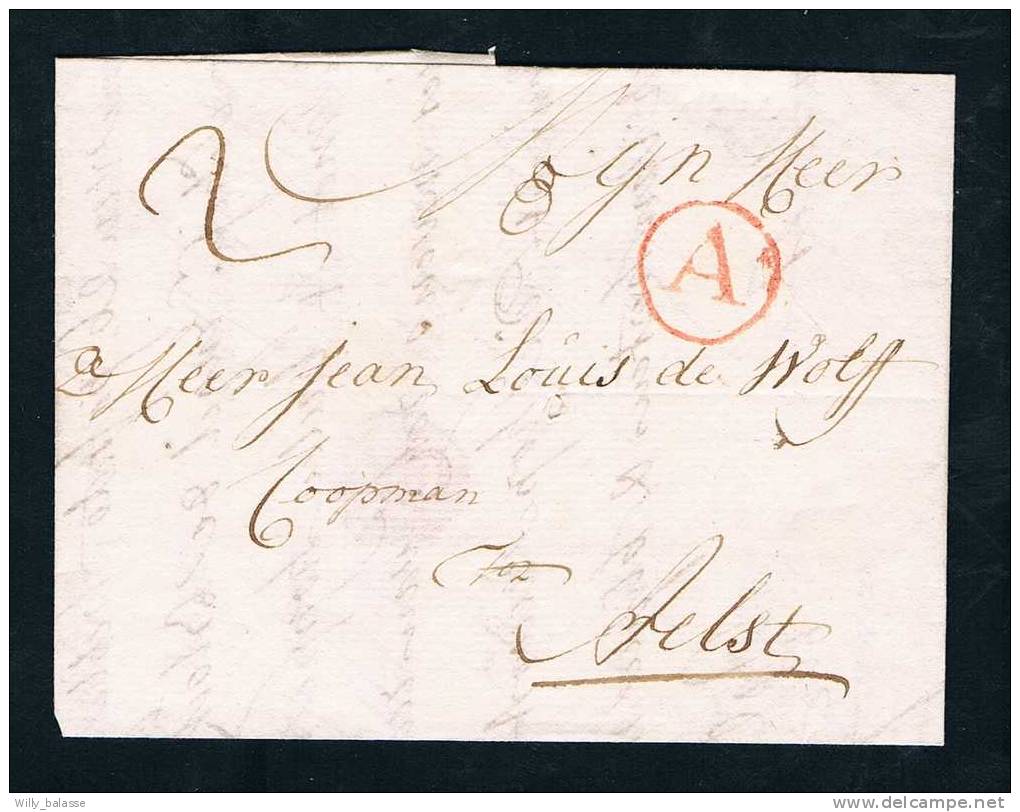 2 Myn Heer
A
a Meer Jean Louis de Wolff
Coopman
tot
Aelst
Willy_balasse
www.delcampe.net